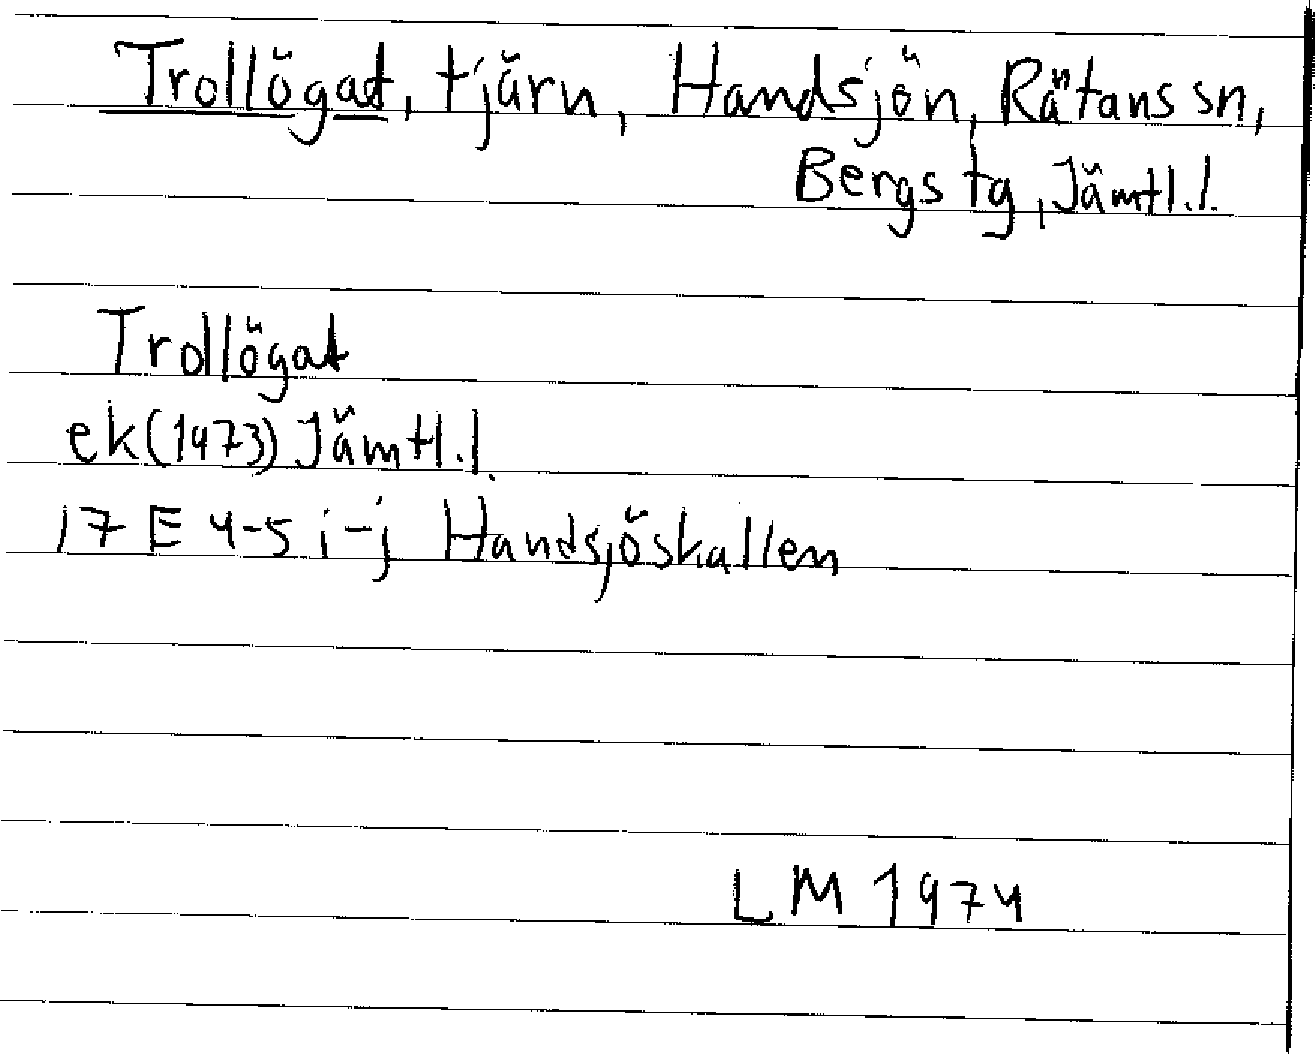 Trollögat, tjärn, Handsjön, Rätans sn,
Bergs tg, Jämtl.l.
Trollögat
ek(1973) Jämtl.l.
17 E 4-5 i-j Handsjöskallen
LM 1974